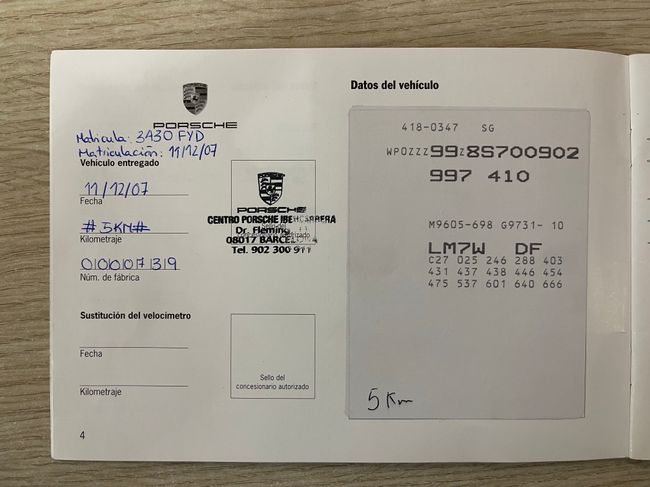 PORSCHE
Matricula: 3430 FYD
Matriculación: 11/12/07
Vehículo entregado
11/12/07
Fecha
#5KM#
Kilometraje
Núm. de fábrica
PORSCHE
CENTRO PORSCHE
Dr. Fleming
08017 BARCEL
Tel. 902 300 911
Sustitución del velocímetro
Fecha
Kilometraje
Sello del
concesionario autorizado
4
Datos del vehículo
418-0347 SG
WP0ZZZ99Z8S700902
997 410
M9605-698 G9731- 10
LM7W DF
C27 025 246 288 403
431 437 438 446 454
475 537 601 640 666
5 Km